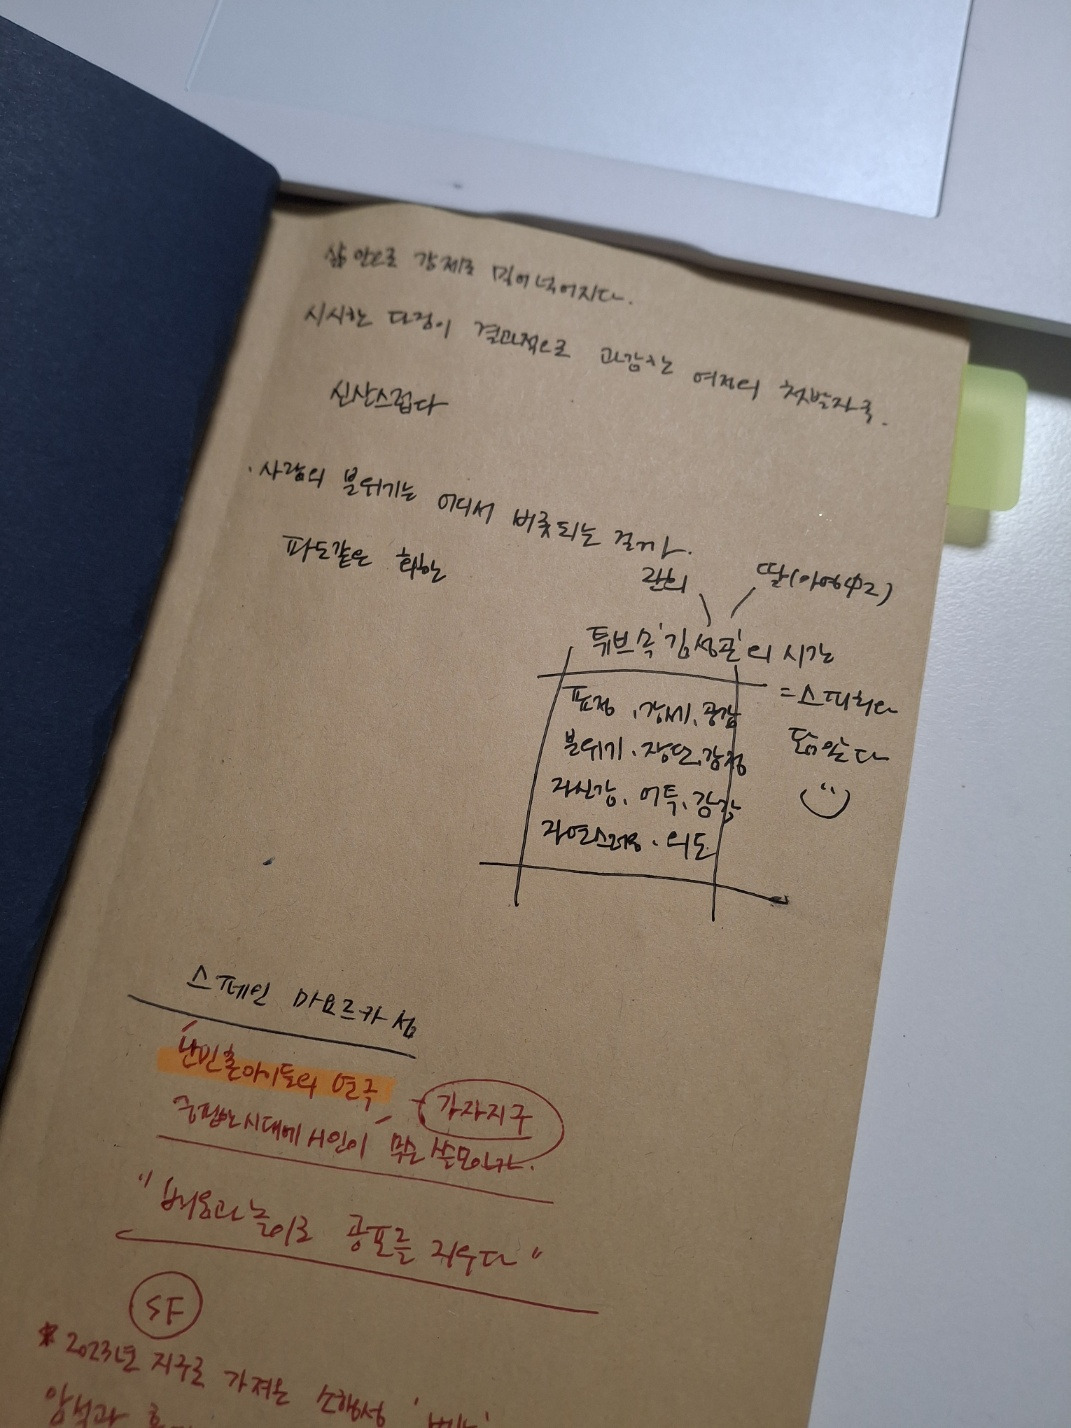 삶 안으로 강제로 밀어 넣어지다.
시시한 다정이 결과적으로 과감한 여정의 첫발자국.
신산스럽다
· 사람의 분위기는 어디서 비롯되는 걸까.
파도같은 회한
관희
딸(아영 中2)
튜브 속 '김성관'의 시간
= 스며희다
표정, 강세, 공감
분위기, 장단, 감정
자신감, 어투, 감강
자연스러움, 의도
닮았다
스페인 마요르카 섬
난민촌아이들의 연극
가자지구
궁핍한 시대에 시인이 무슨 쓸모인가.
"배움과 놀이로 공포를 지우다"
SF
* 2023년 지구로 가져온 소행성 '베누'
암석과